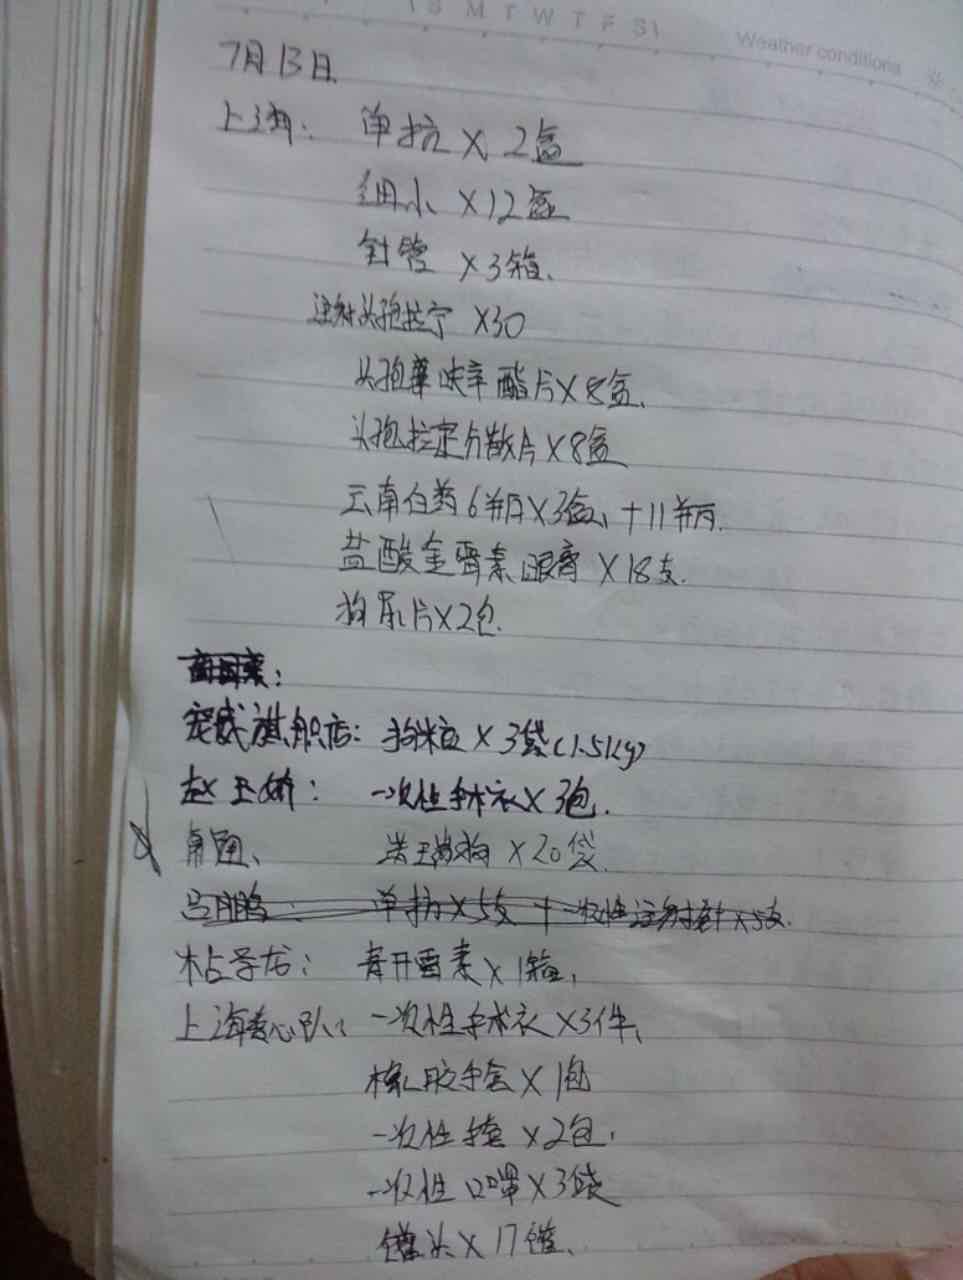 S M T W T F S
Weather conditions
7月13日
上海: 单抗 × 2盒
细小 ×12盒
针管 ×3箱.
注射头孢拉宁 ×30
头孢 呋辛酯片×8盒.
头孢拉定分散片×8盒
云南白药6瓶×3盒, +11瓶.
盐酸金霉素眼膏 ×18支.
狗尿片×2包.
宠威旗舰店: 狗粮 × 3袋(1.5kg)
赵玉娇: 一次性手术衣× 3包.
×20袋.
单抗×5支 + 一次性注射 ×5支.
青开霉素× 1箱.
上海爱心队: 一次性手术衣 ×3件.
橡胶手套 × 1包
一次性 ×2包.
一次性口罩×3袋
罐头 × 17罐.